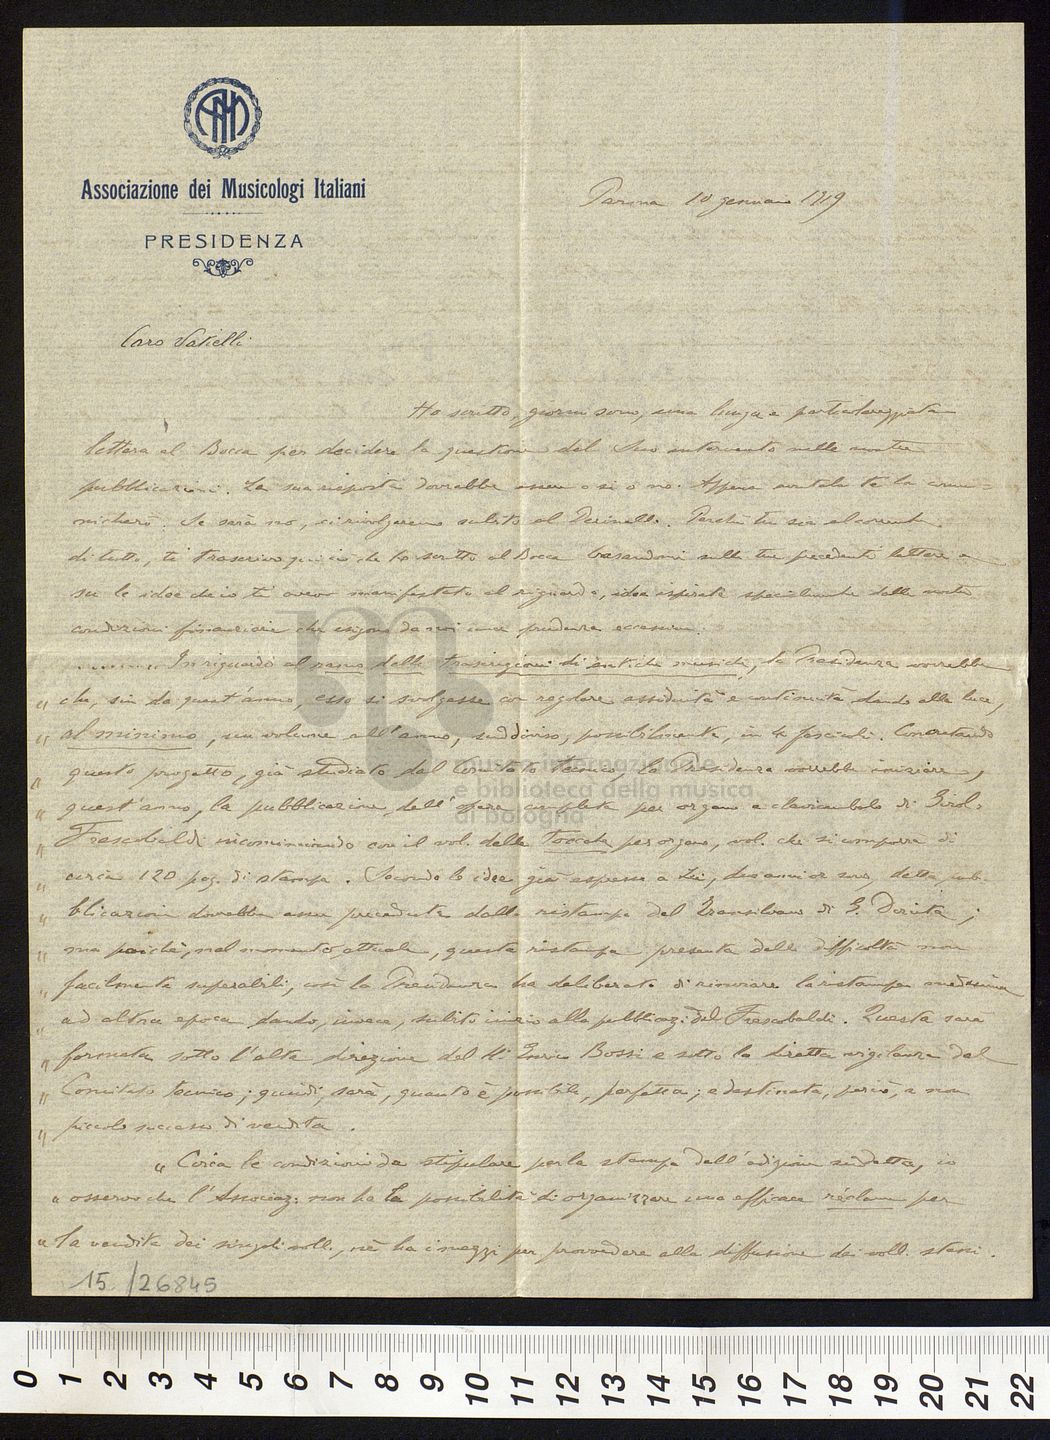 Associazione dei Musicologi Italiani
PRESIDENZA
Parma 10 gennaio 1919
Caro Vatielli
Ho scritto, giorni sono, una lunga e particolareggiata
lettera al Bocca per decidere la questione del suo intervento nelle nostre
pubblicazioni. La sua risposta dovrebbe essere o sì o no. Appena avutala te la comu-
nicherò. Se sarà no, ci rivolgeremo subito al . Perchè tu sia al corrente
di tutto, ti trascrivo qui ciò che ho scritto al Bocca basandomi sulle tue precedenti lettere e
su le idee che io ti avevo manifestato al riguardo, idee ispirate specialmente dalle nostre
condizioni finanziarie che esigono da noi una prudenza eccessiva.
......... In riguardo al ramo delle trascrizioni di antiche musiche, la Presidenza vorrebbe
„ che, sin da quest'anno, esso si svolgesse con regolare assiduità e continuità dando alla luce,
„ al minimo, un volume all'anno, suddiviso, possibilmente, in 4 fascicoli. Concretando
„ questo progetto, già studiato dal Comitato tecnico, la Presidenza vorrebbe iniziare,
„ quest'anno, la pubblicazione dell'opera completa per organo e clavicembalo di Girol.
„ Frescobaldi incominciando con il vol. delle Toccate per organo, vol. che si comporrà di
„ circa 120 pag. di stampa. Secondo le idee già espresse a Lei, due anni or sono, detta pub-
„ blicazione dovrebbe esser preceduta dalla ristampa del Transilvano di G. Diruta;
„ ma poichè, nel momento attuale, questa ristampa presenta delle difficoltà non
„ facilmente superabili, così la Presidenza ha deliberato di rinviare la ristampa medesima
„ ad altra epoca dando, invece, subito inizio alla pubblicaz. del Frescobaldi. Questa sarà
„ formata sotto l'alta direzione del M. Enrico Bossi e sotto la diretta vigilanza del
„ Comitato tecnico; quindi sarà, quanto è possibile, perfetta; e destinata, perciò, a non
„ piccolo successo di vendita.
„ Circa le condizioni da stipulare per la stampa dell'edizione suddetta, io
„ osservo che l'Associaz. non ha la possibilità di organizzare una efficace réclame per
„ la vendita dei singoli voll., nè ha i mezzi per provvedere alla diffusione dei voll. stessi.
15/26845
museo internazionale
e biblioteca della musica
di bologna
0 1 2 3 4 5 6 7 8 9 10 11 12 13 14 15 16 17 18 19 20 21 22